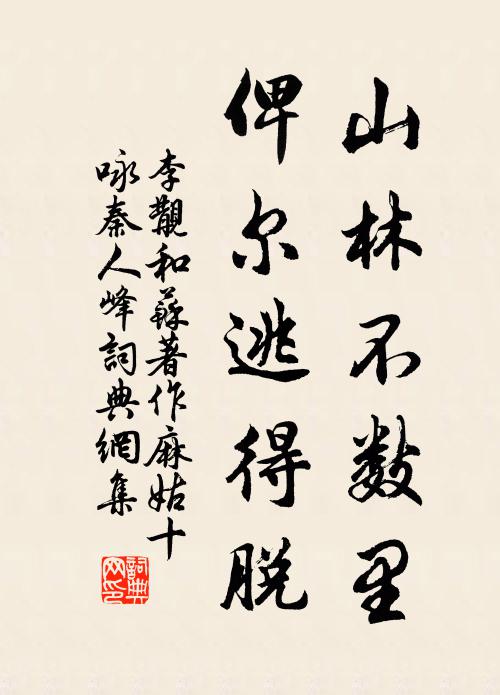 山林不数里
俾尔逃得脱
李覯和蘇著作麻姑十
咏秦人峰詞典網集
詞典
网印